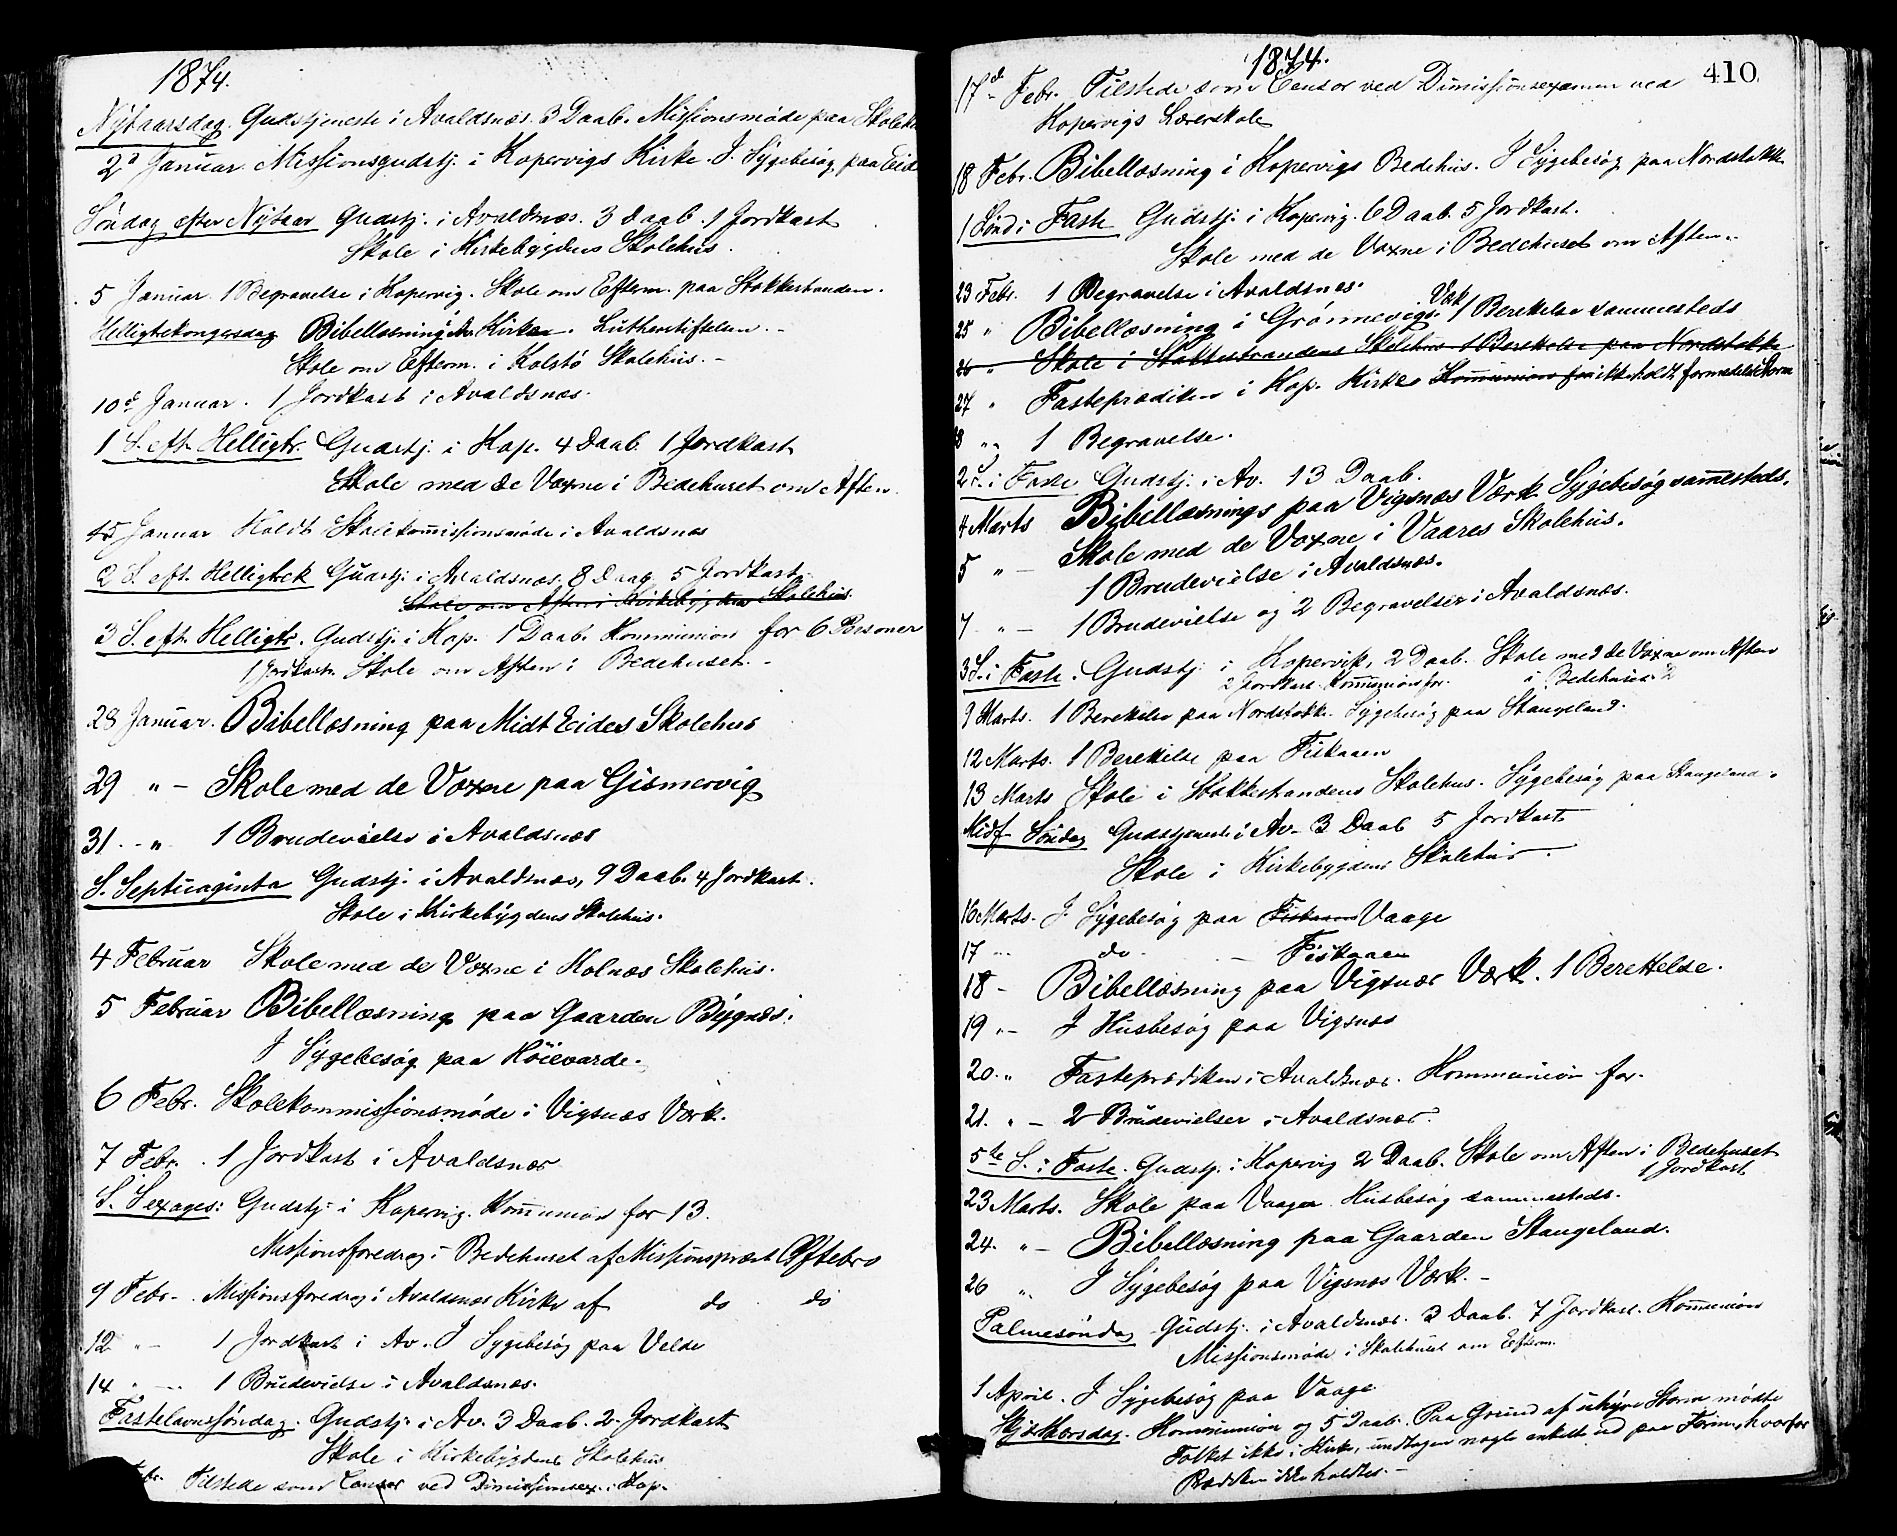 1874.
Nytaarsdag. Gudstjeneste i Avaldsnæs. 3 Daab. Missionsmøde paa
2d Januar. Missionsgudstj. i Kopervigs Kirke. I Sygebesøg paa Eide
Søndag efter Nytaar Gudstj. i Avaldsnæs. 3 Daab. 1 Jordkast
Skole i Kirkebygdens Skolehus.
5 Januar. 1 Begravelse i Kopervig. Skole om Efterm. paa Stokkestranden.
Helligtrekongersdag Bibellæsning i Kirken. Lutherstiftelsen.
Skole om Efterm. i Kolstø Skolehus. -
10d Januar. 1 Jordkast i Avaldsnæs.
1 S. eft. Helligtr. Gudstj. i Kop. 4 Daab 1 Jordkast
Skole med de Voxne i Bedehuset om Aften.
15 Januar Holdt Skolekommissionsmøde i Avaldsnæs
2 S. eft. Helligtrek Gudstj. i Avaldsnæs. 8 Daab 5 Jordkast
Skole om Aften i Kirkebygdens Skolehus.
3 S. eft. Helligtr. Gudstj. i Kop. 1 Daab. Kommunion for 6 Personer
1 Jordkast. Skole om Aften i Bedehuset. -
28 Januar. Bibellæsning paa Midt Eides Skolehus
29 " - Skole med de Voxne paa Gismervig
31 - " 1 Brudevielse i Avaldsnæs
S. Septuaginta Gudstj. i Avaldsnæs, 9 Daab. 4 Jordkast.
Skole i Kirkebygdens Skolehus.
4 Februar Skole med de Voxne i Kolnæs Skolehus.
5 Februar Bibellæsning paa Gaarden Bygnæs.
I Sygebesøg paa Høievarde.
6 Febr. Skolekommissionsmøde i Vigsnæs Værk.
7 Febr. 1 Jordkast i Avaldsnæs
S. Sexages: Gudstj. i Kopervig. Kommunion for 13.
Missionsforedrag i Bedehuset af Missionspræst Oftebro
9 Febr. - Missionsforedrag i Avaldsnæs Kirke af do do
12 " - 1 Jordkast i Av. I Sygebesøg paa Velde
14 " - 1 Brudevielse i Avaldsnæs.
Fastelavnssøndag. Gudstj. i Av. 3 Daab. 2 Jordkast
Skole i Kirkebygdens Skolehus
Febr. Tilstede som Censor ved Dimissionsex. i Kop.
1874.
410.
17d Febr. Tilstede som Censor ved Dimissionsexamen ved
Kopervigs Lærerskole
18 Febr. Bibellæsning i Kopervigs Bedehus. I Sygebesøg paa Nordstokke
1 Sønd i Faste Gudstj. i Kopervig. 6 Daab. 5 Jordkast.
Skole med de Voxne i Bedehuset om Aften.
23 Febr. 1 Begravelse i Avaldsnæs.
25 " Bibellæsning i Grønnevigs. 1 Berettelse sammesteds
26 " Skole i Stokkestrandens Skolehus 1 Berettelse paa Nordstokke
27 " Fasteprædiken i Kop. Kirke Kommunion for ikke holdt formedelst Storm
28 " 1 Begravelse.
2 S. i Faste Gudstj. i Av. 13 Daab.
4 Marts Bibellæsning paa Vigsnæs Værk Sygebesøg sammesteds.
5 " - Skole med de Voxne i Vaares Skolehus.
1 Brudevielse i Avaldsnæs.
7 " - 1 Brudevielse og 2 Begravelser i Avaldsnæs.
3 S. i Faste. Gudstj. i Kopervik, 2 Daab. Skole med de Voxne om Aften
2 Jordkast Kommunion for. i Bedehuset
9 Marts. 1 Berettelse paa Nordstokke. Sygebesøg paa Stangeland.
12 Marts. 1 Berettelse paa Fiskaaen
13 Marts Skole i Stokkestrandens Skolehus. Sygebesøg paa Stangeland.
Midf. Søndag Gudstjeneste i Av. 3 Daab 5 Jordkast
Skole i Kirkebygdens Skolehus.
16 Marts. I Sygebesøg paa Fiskaaen Vaage
17 " do - Fiskaaen
18 - Bibellæsning paa Vigsnæs Værk. 1 Berettelse.
19 " - I Husbesøg paa Vigsnæs
20 " Fasteprædiken i Avaldsnæs. Kommunion for.
21. " - 2 Brudevielser i Avaldsnæs.
5te S. i Faste. Gudstj. i Kopervig 2 Daab. Skole om Aften i Bedehuset
1 Jordkast
23 Marts. Skole paa Vaage. Husbesøg sammesteds.
24. " - Bibellæsning paa Gaarden Stangeland.
26 " I Sygebesøg paa Vigsnæs Værk. -
Palmesøndag Gudstj. i Avaldsnæs. 3 Daab. 7 Jordkast. Kommunion
Missionsmøde i Skolehuset om Efterm.
1 April. I Sygebesøg paa Vaage
Skjærthorsdag. Kommunion og 5 Daab. Paa Grund af uhyre Storm mødte
Folket ikke i Kirke, undtagen nogle enkelte ud paa Form., hvorfor
Prædiken ikke holdtes. -